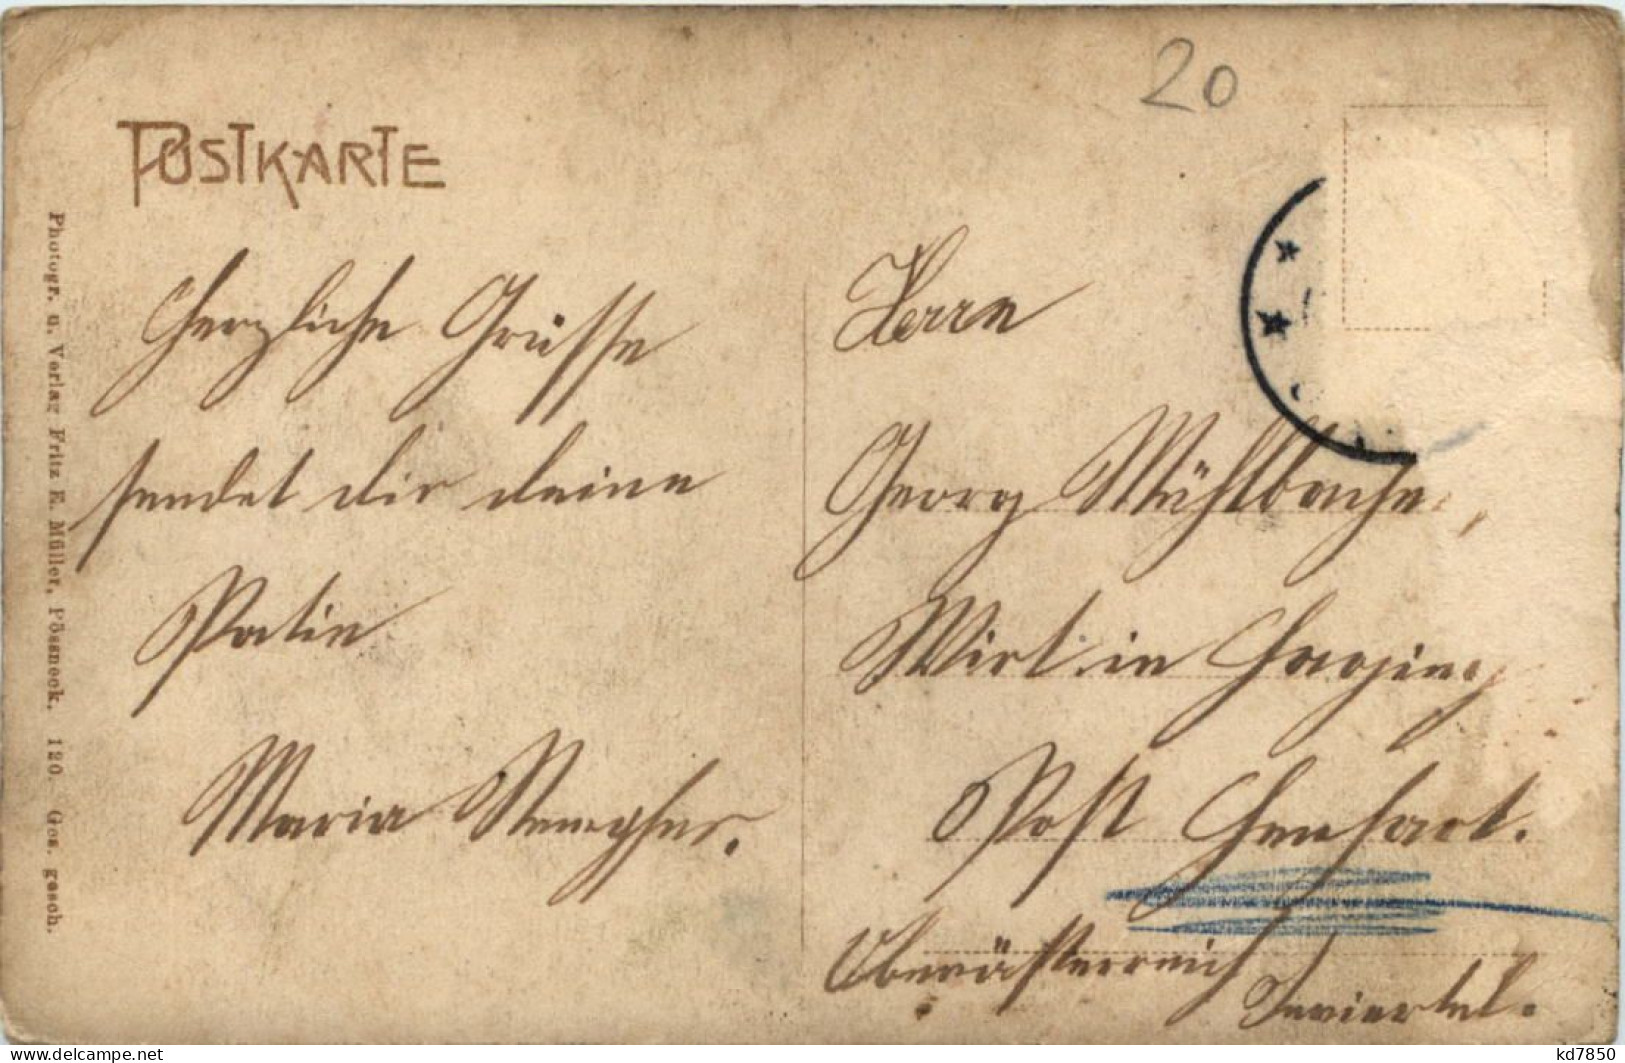 20
POSTKARTE
Photogr. u. Verlag Fritz E. Müller, Pössneck. 120. Ges. gesch.
Herzliche Grüsse
sendet dir deine
Patin
Maria
Herrn
Georg Mühlbacher,
Wirt in
Post Henhart.
Oberösterreich
Innviertel.
kd7850